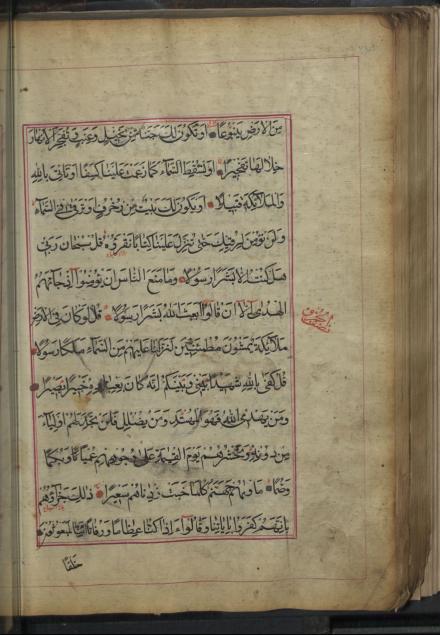 مِنَ الْاَرْضِ يَنْبُوعًا اَوْ تَكُونَ لَكَ جَنَّةٌ مِنْ نَخِيلٍ وَعِنَبٍ فَتُفَجِّرَ الْاَنْهَارَ
خِلَالَهَا تَفْجِيرًا اَوْ تُسْقِطَ السَّمَآءَ كَمَا زَعَمْتَ عَلَيْنَا كِسَفًا اَوْ تَاْتِىَ بِاللّٰهِ
وَالْمَلٰئِكَةِ قَبِيلًا اَوْ يَكُونَ لَكَ بَيْتٌ مِنْ زُخْرُفٍ اَوْ تَرْقٰى فِى السَّمَآءِ
وَلَنْ نُؤْمِنَ لِرُقِيِّكَ حَتّٰى تُنَزِّلَ عَلَيْنَا كِتَابًا نَقْرَؤُهُ قُلْ سُبْحَانَ رَبِّى
هَلْ كُنْتُ اِلَّا بَشَرًا رَسُولًا وَمَا مَنَعَ النَّاسَ اَنْ يُؤْمِنُوا اِذْ جَآءَهُمُ
الْهُدٰى اِلَّا اَنْ قَالُوا اَبَعَثَ اللّٰهُ بَشَرًا رَسُولًا قُلْ لَوْ كَانَ فِى الْاَرْضِ
مَلٰئِكَةٌ يَمْشُونَ مُطْمَئِنِّينَ لَنَزَّلْنَا عَلَيْهِمْ مِنَ السَّمَآءِ مَلَكًا رَسُولًا
قُلْ كَفٰى بِاللّٰهِ شَهِيدًا بَيْنِى وَبَيْنَكُمْ اِنَّهُ كَانَ بِعِبَادِهِ خَبِيرًا بَصِيرًا
وَمَنْ يَهْدِ اللّٰهُ فَهُوَ الْمُهْتَدِ وَمَنْ يُضْلِلْ فَلَنْ تَجِدَ لَهُمْ اَوْلِيَآءَ
مِنْ دُونِهِ وَنَحْشُرُهُمْ يَوْمَ الْقِيٰمَةِ عَلٰى وُجُوهِهِمْ عُمْيًا وَبُكْمًا
وَصُمًّا مَاْوٰيهُمْ جَهَنَّمُ كُلَّمَا خَبَتْ زِدْنَاهُمْ سَعِيرًا ذٰلِكَ جَزَآؤُهُمْ
بِاَنَّهُمْ كَفَرُوا بِاٰيَاتِنَا وَقَالُوا ءَاِذَا كُنَّا عِظَامًا وَرُفَاتًا ءَاِنَّا لَمَبْعُوثُونَ
خَلْقًا